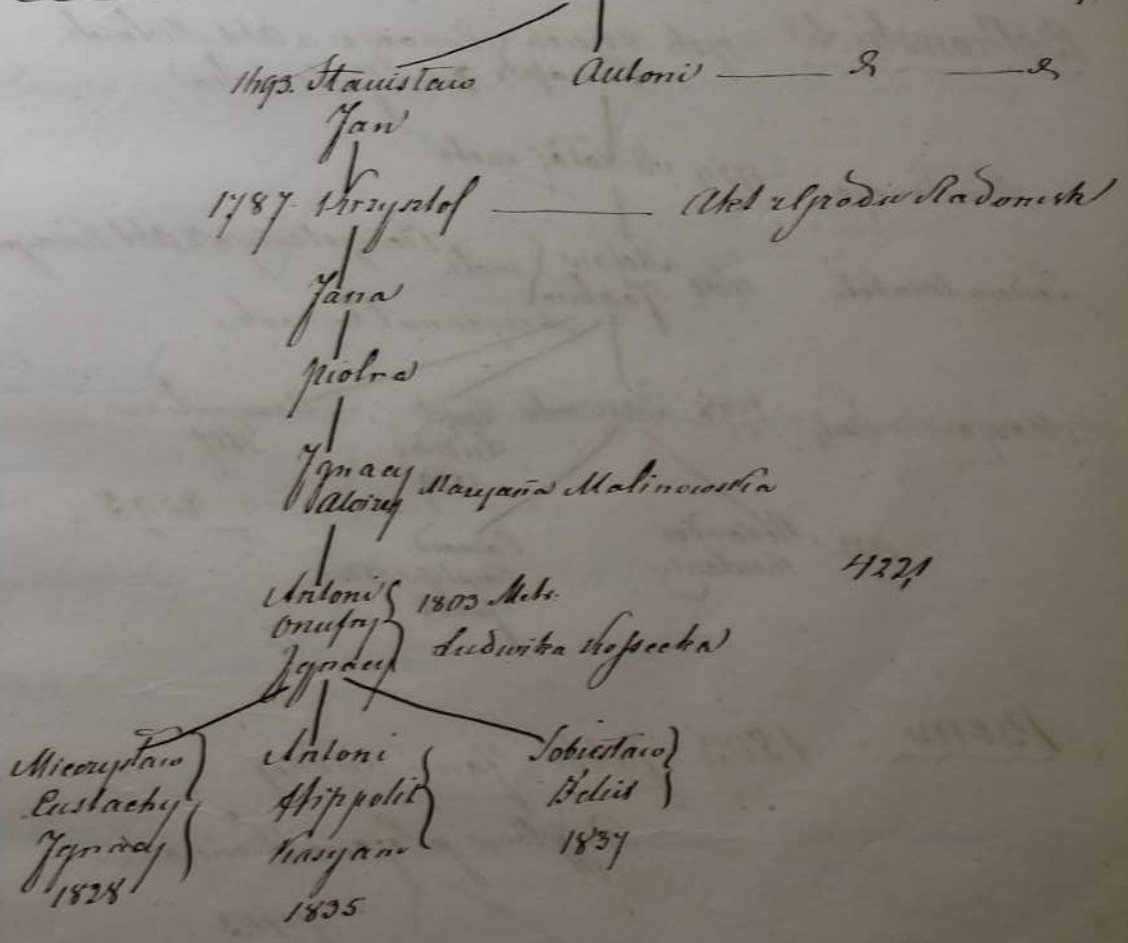 1693. Stanisław Antoni
Jan
1787. Krzysztof Akt z Grodu Radomsk
Jana
Piotra
Ignacy
Aloizy Maryana Malinowska
4221
Antoni 1803 Metr.
Onufry
Ignacy Ludwika Kossecka
Mieczysław
Eustachy
Ignacy
1828
Antoni
Hippolit
Kasyan
1835
Sobiesław
1837